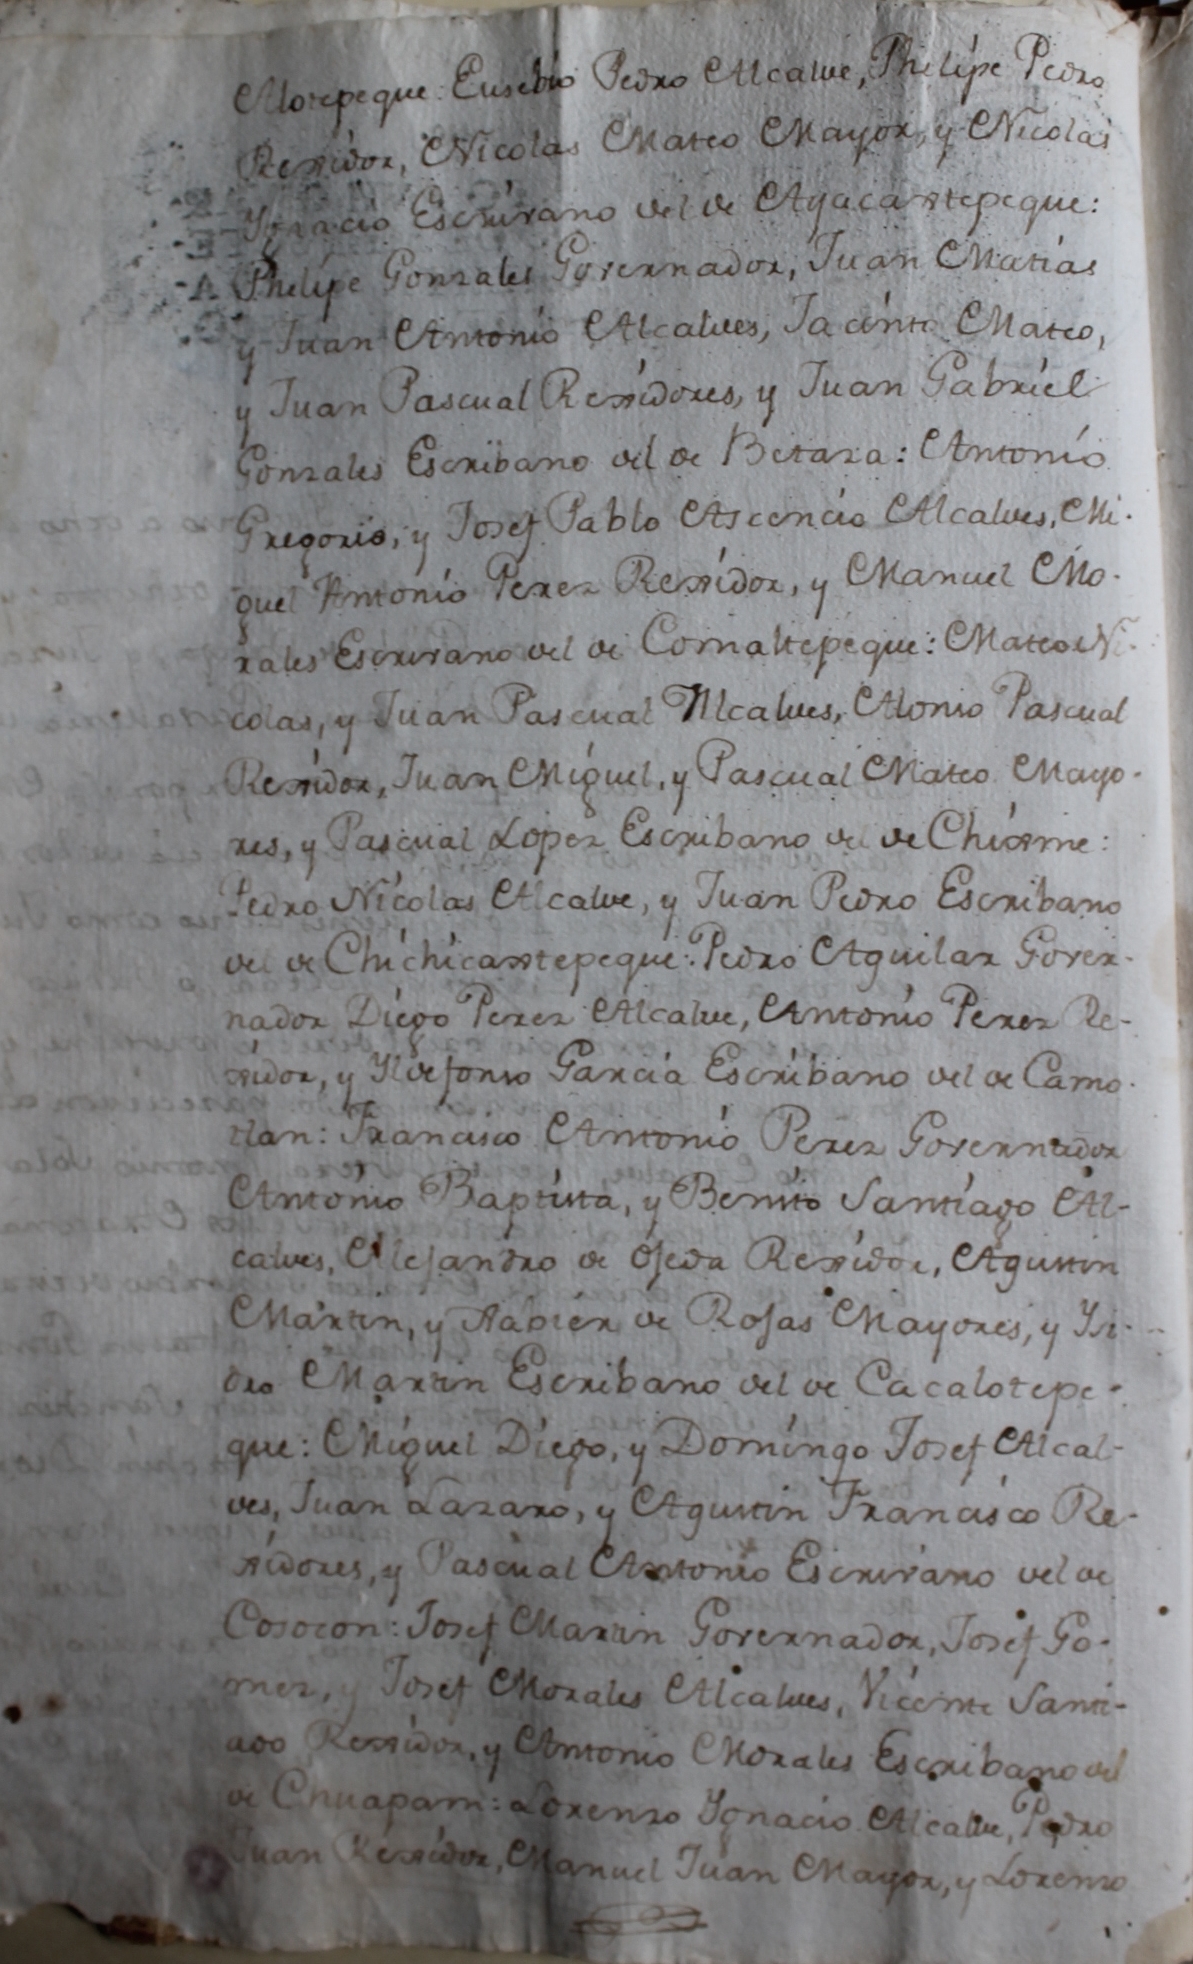 Motepeque: Eusebio Pedro Alcalde, Phelipe Pedro
Rexidor, Nicolas Mateo Mayor, y Nicolas
Ygnacio Escrivano del de Ayacaxtepeque:
Phelipe Gonzales Governador, Juan Matias
y Juan Antonio Alcaldes, Jacinto Mateo,
y Juan Pascual Rexidores, y Juan Gabriel
Gonzales Escribano del de Betaza: Antonio
Gregorio, y Josef Pablo Ascencio Alcaldes, Mi-
guel Antonio Perez Rexidor, y Manuel Mo-
rales Escrivano del de Comaltepeque: Mateo Ni-
colas, y Juan Pascual Alcaldes, Alonso Pascual
Rexidor, Juan Miguel, y Pascual Mateo Mayo-
res, y Pascual Lopez Escribano del de Chisme:
Pedro Nicolas Alcalde, y Juan Pedro Escribano
del de Chichicaxtepeque: Pedro Aguilar Gover-
nador Diego Perez Alcalde, Antonio Perez Re-
xidor, y Yldefonso Garcia Escribano del de Camo-
tlan: Francisco Antonio Perez Governador
Antonio Baptista, y Benito Santiago Al-
caldes, Alejandro de Ojeda Rexidor, Agustin
Martin, y Xabier de Rojas Mayores, y Ysi-
dro Martin Escribano del de Cacalotepe-
que: Miguel Diego, y Domingo Josef Alcal-
des, Juan Lazaro, y Agustin Francisco Re-
xidores, y Pascual Antonio Escrivano del de
Cosocon: Josef Martin Governador, Josef Go-
mez, y Josef Morales Alcaldes, Vicente Santi-
ago Rexidor, y Antonio Morales Escribano del
de Chuapam: Lorenzo Ygnacio Alcalde, Pedro
Juan Rexidor, Manuel Juan Mayor, y Lorenzo